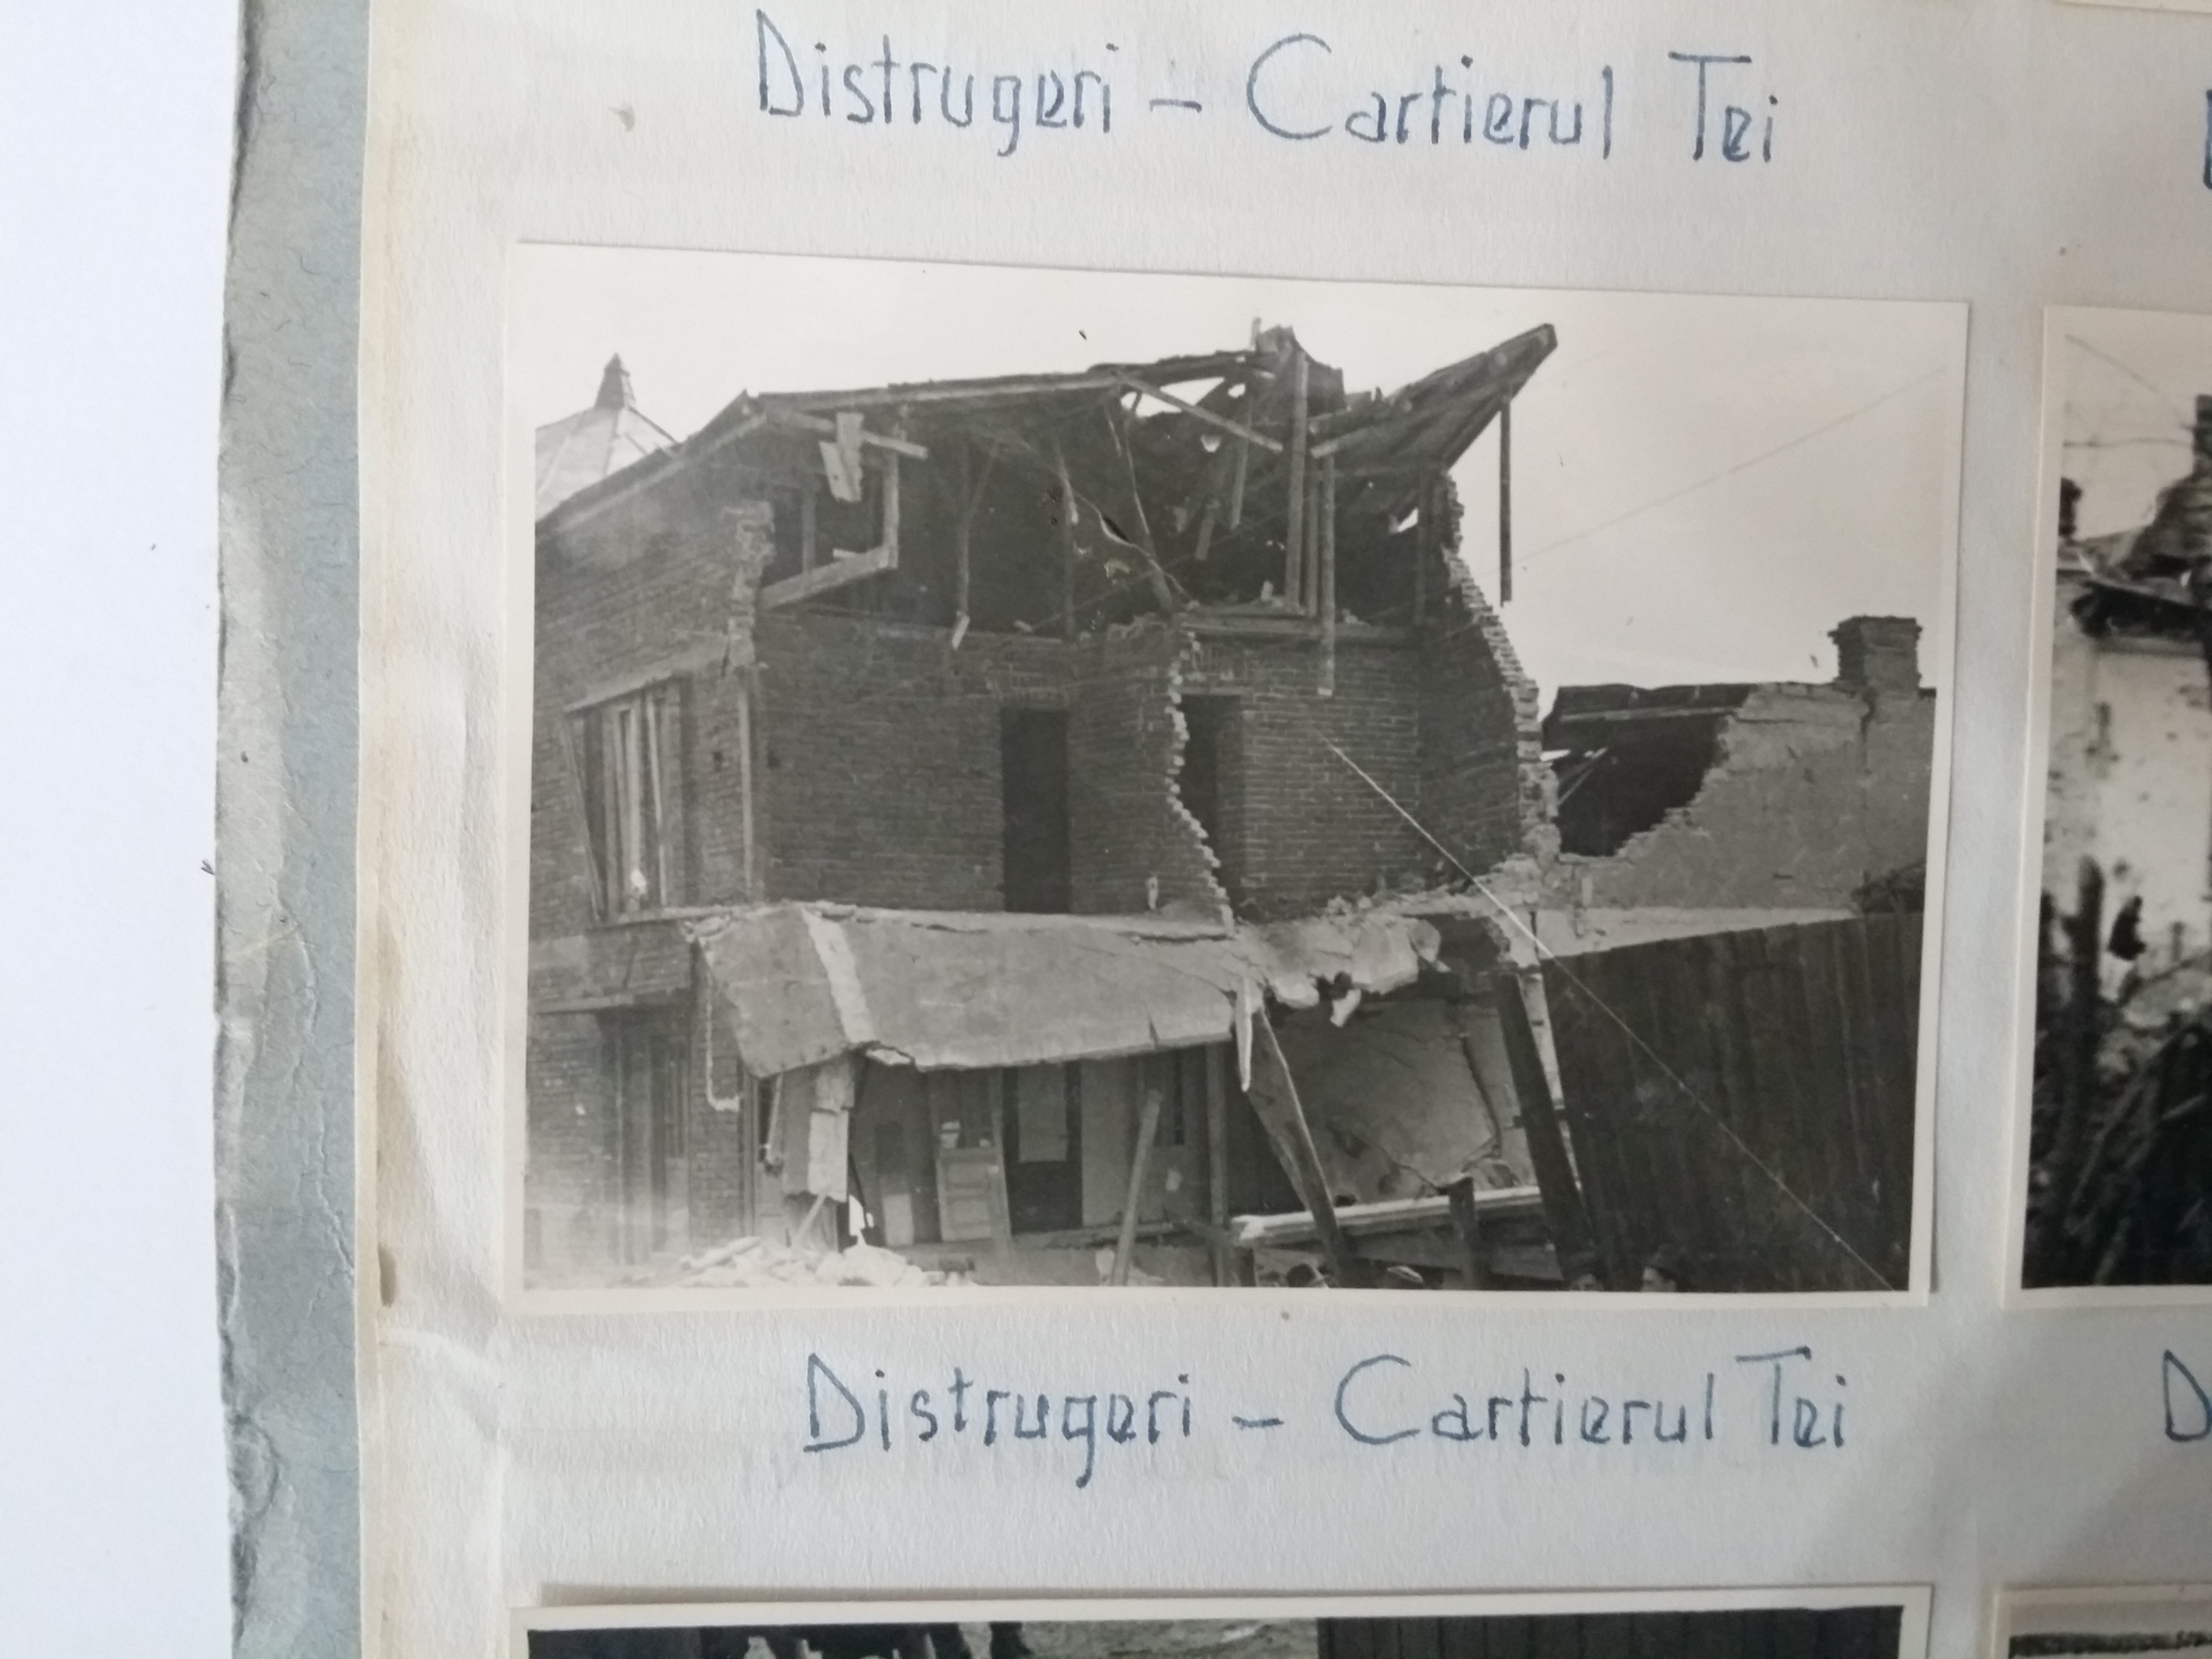 Distrugeri - Cartierul Tei
Distrugeri - Cartierul Tei
D